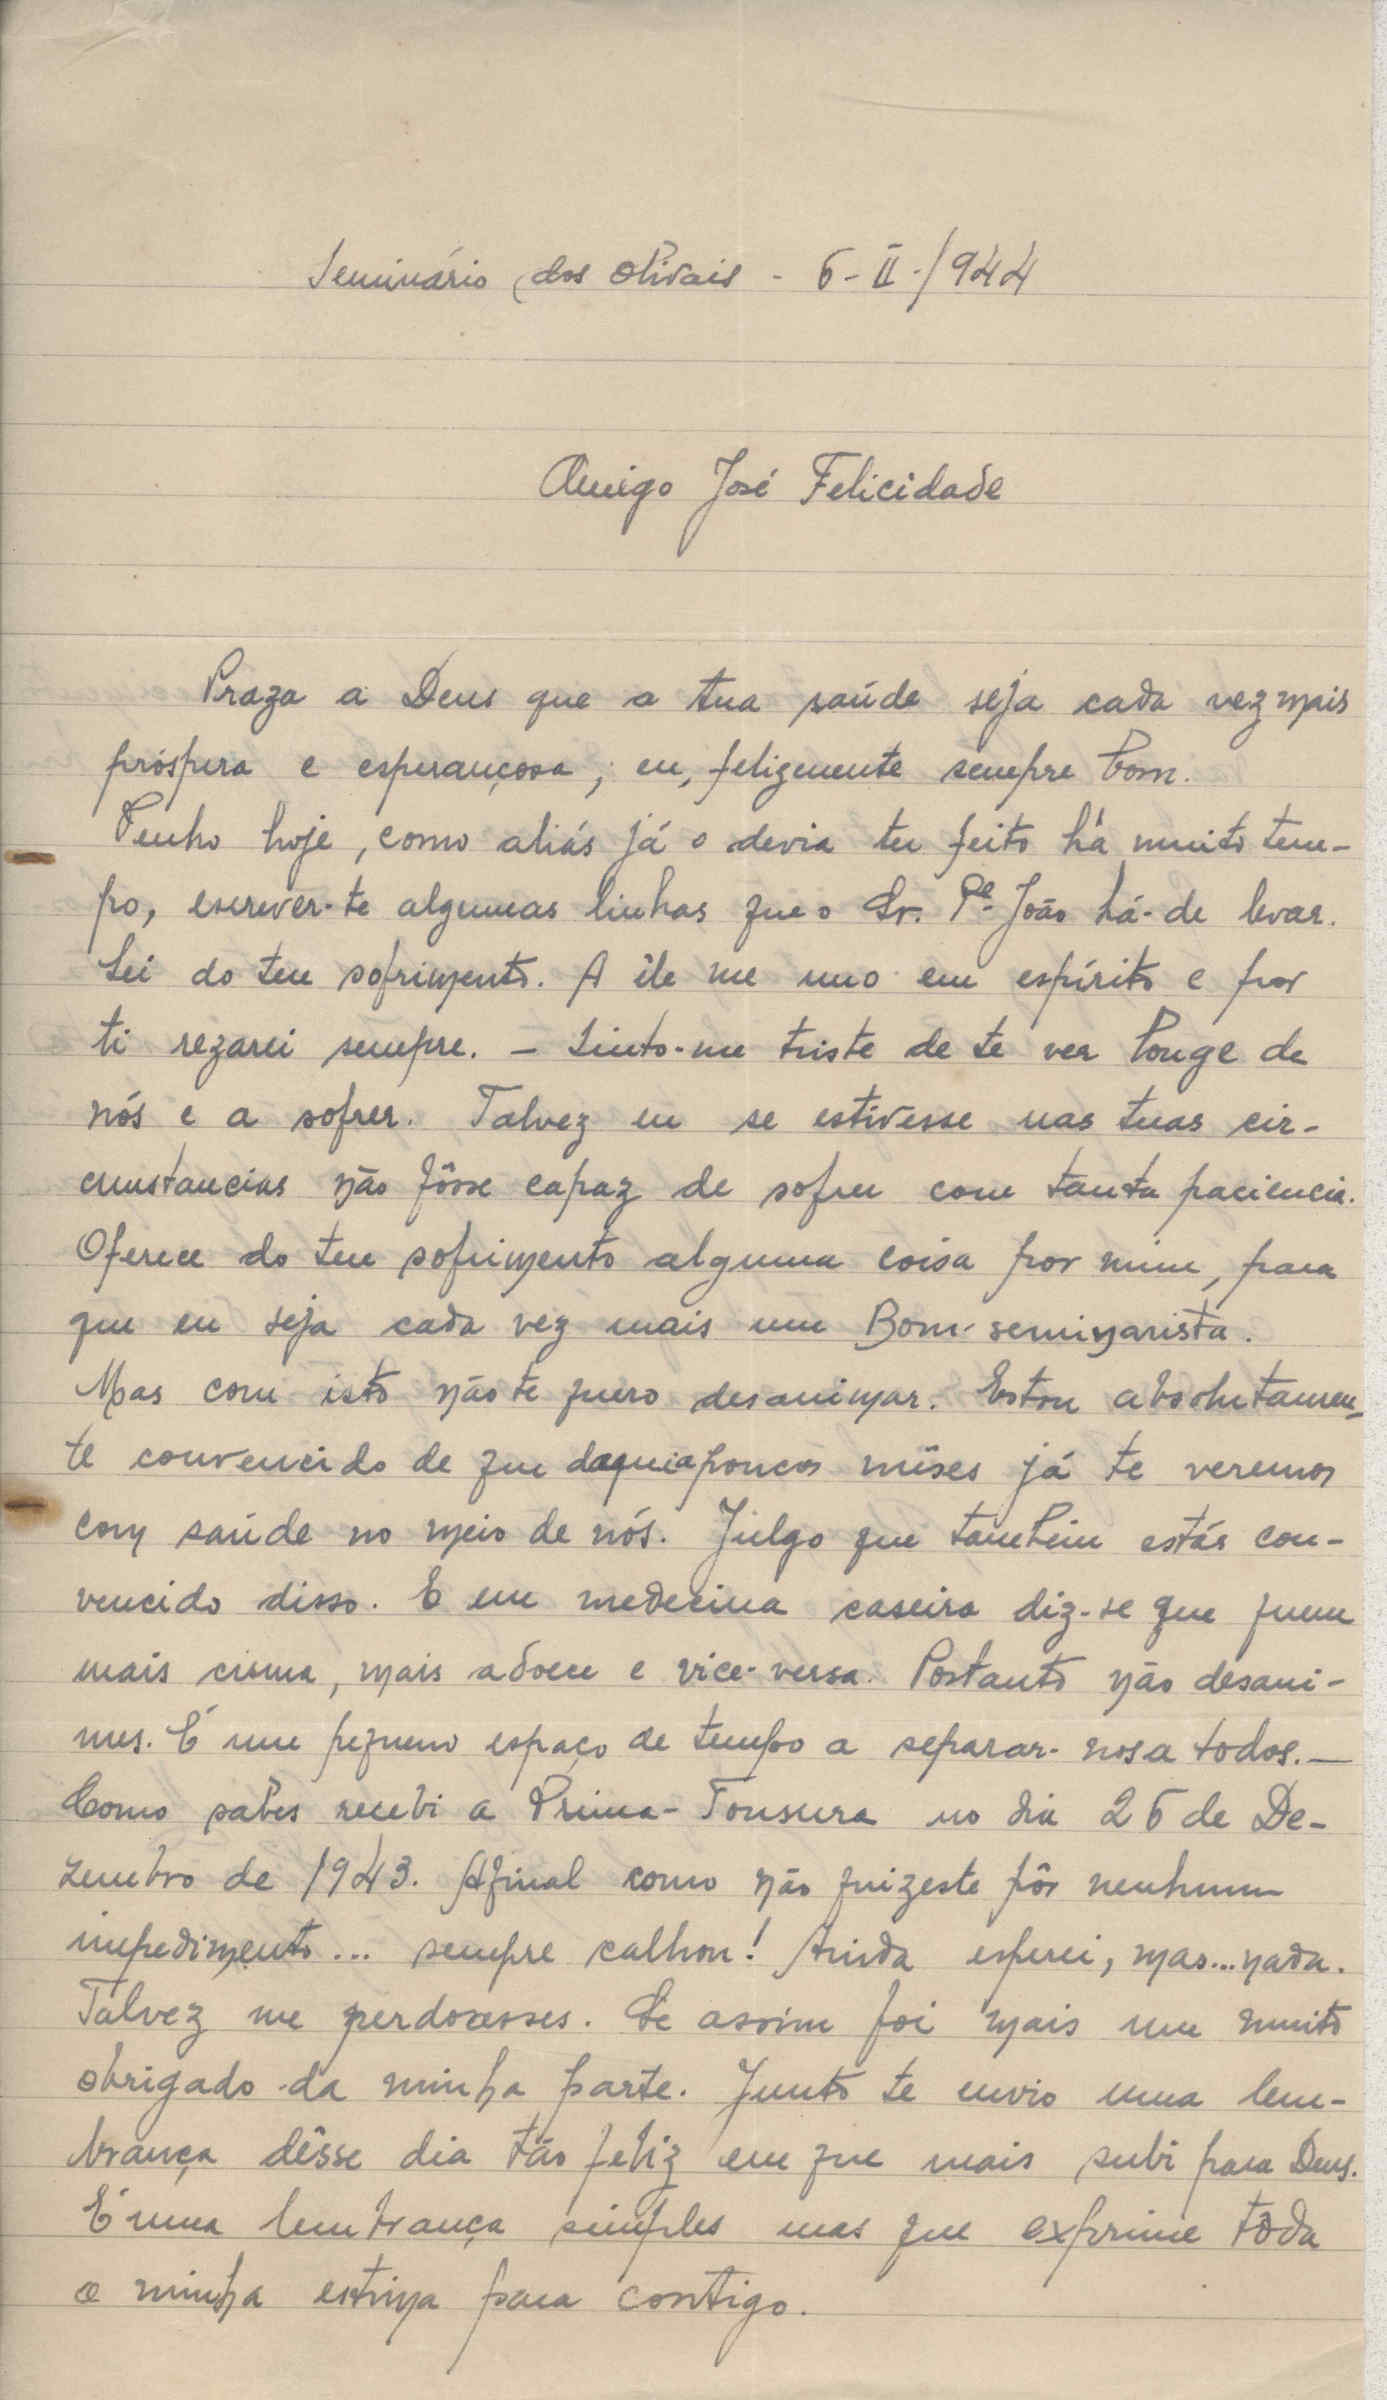 Seminário dos Olivais - 6-II-1944
Amigo José Felicidade
Praza a Deus que a tua saúde seja cada vez mais
próspera e esperançosa; eu, felizmente sempre bom.
Venho hoje, como aliás já o devia ter feito há muito tem-
po, escrever-te algumas linhas que o Sr. Pe. João há-de levar.
Sei do teu sofrimento. A êle me uno em espírito e por
ti rezarei sempre. - Sinto-me triste de te ver longe de
nós e a sofrer. Talvez eu se estivesse nas tuas cir-
cunstancias não fôsse capaz de sofrer com tanta paciencia.
Oferece do teu sofrimento alguma coisa por mim, para
que eu seja cada vez mais um Bom-seminarista.
Mas com isto não te quero desanimar. Estou absolutamen-
te convencido de que daqui a poucos mêses já te veremos
com saúde no meio de nós. Julgo que também estás con-
vencido disso. E em medecina caseira diz-se que quem
mais cisma, mais adoece e vice-versa. Portanto não desani-
mes. É um pequeno espaço de tempo a separar-nos a todos. -
Como sabes recebi a Prima-Tonsura no dia 26 de De-
zembro de 1943. Afinal como não quizeste pôr nenhum
impedimento... sempre calhou! Ainda esperei, mas... nada.
Talvez me perdoasses. Se assim foi mais um muito
obrigado da minha parte. Junto te envio uma lem-
brança dêsse dia tão feliz em que mais subi para Deus.
É uma lembrança simples mas que exprime tôda
a minha estima para contigo.